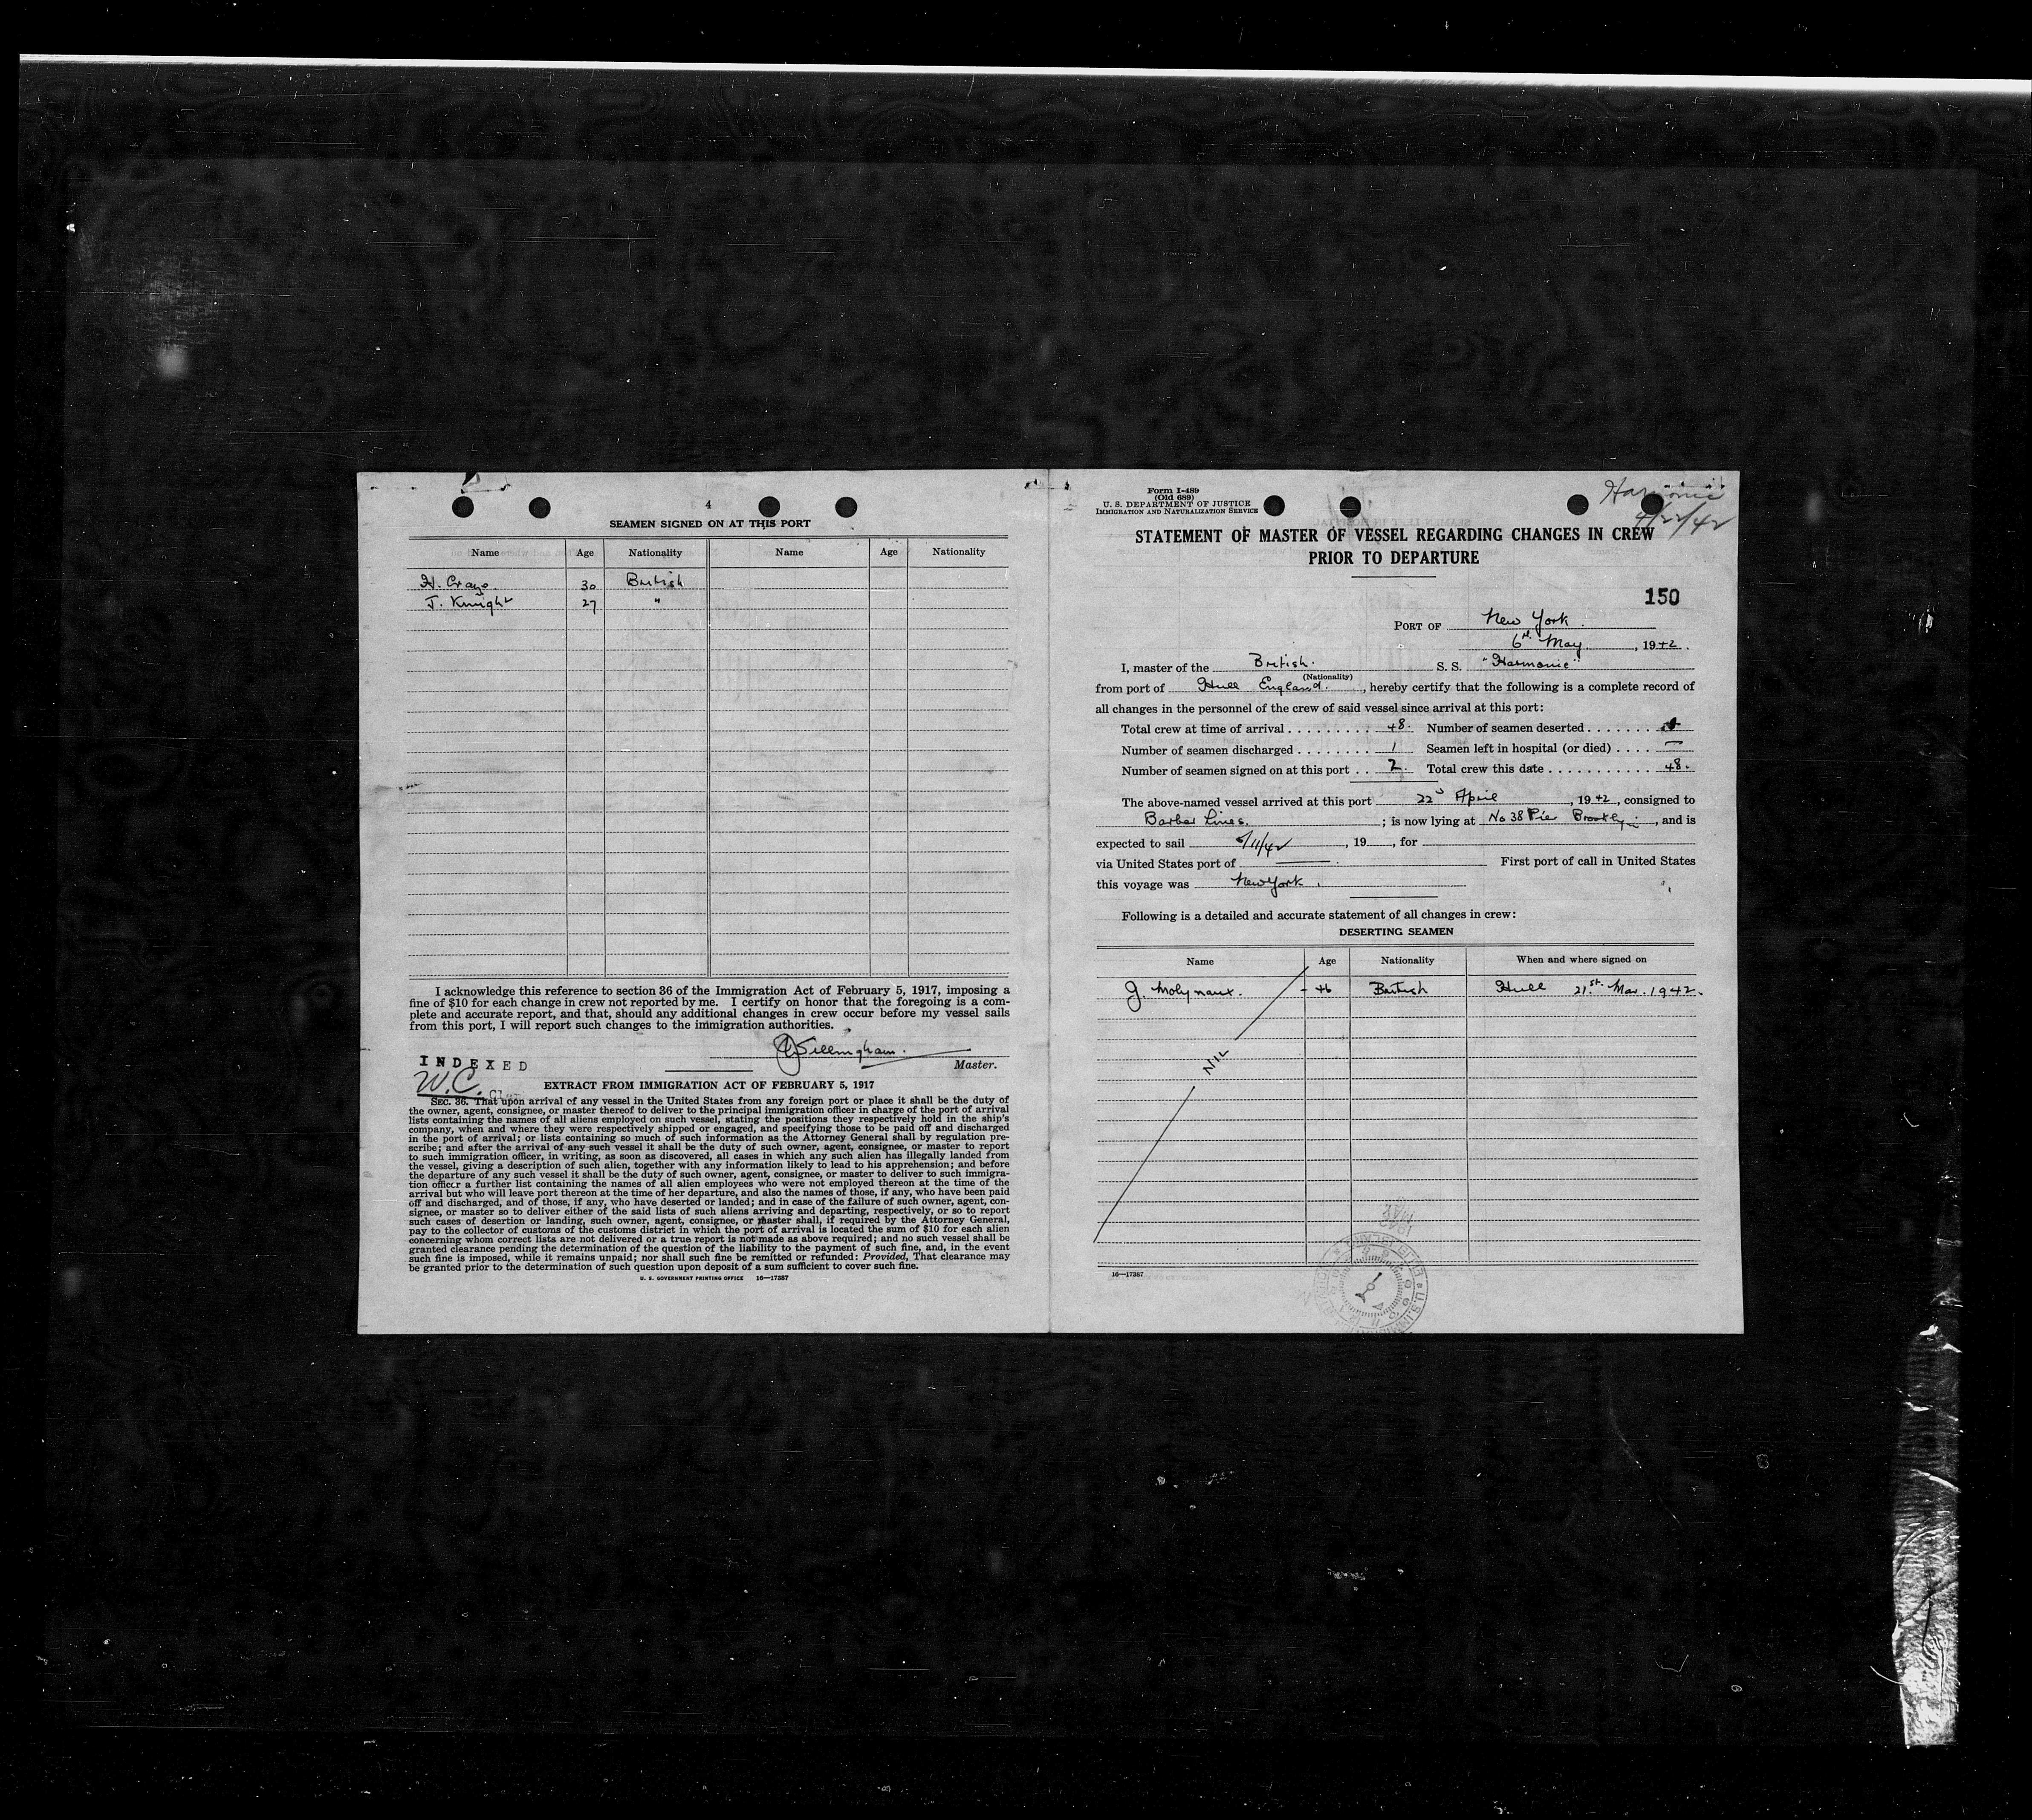 4
SEAMEN SIGNED ON AT THIS PORT
Name Age Nationality Name Age Nationality
30 British
J. Knight 27 "
I acknowledge this reference to section 36 of the Immigration Act of February 5, 1917, imposing a
fine of $10 for each change in crew not reported by me. I certify on honor that the foregoing is a com-
plete and accurate report, and that, should any additional changes in crew occur before my vessel sails
from this port, I will report such changes to the immigration authorities.
Master.
INDEXED
W.C.
EXTRACT FROM IMMIGRATION ACT OF FEBRUARY 5, 1917
SEC. 36. That upon arrival of any vessel in the United States from any foreign port or place it shall be the duty of
the owner, agent, consignee, or master thereof to deliver to the principal immigration officer in charge of the port of arrival
lists containing the names of all aliens employed on such vessel, stating the positions they respectively hold in the ship's
company, when and where they were respectively shipped or engaged, and specifying those to be paid off and discharged
in the port of arrival; or lists containing so much of such information as the Attorney General shall by regulation pre-
scribe; and after the arrival of any such vessel it shall be the duty of such owner, agent, consignee, or master to report
to such immigration officer, in writing, as soon as discovered, all cases in which any such alien has illegally landed from
the vessel, giving a description of such alien, together with any information likely to lead to his apprehension; and before
the departure of any such vessel it shall be the duty of such owner, agent, consignee, or master to deliver to such immigra-
tion officer a further list containing the names of all alien employees who were not employed thereon at the time of the
arrival but who will leave port thereon at the time of her departure, and also the names of those, if any, who have been paid
off and discharged, and of those, if any, who have deserted or landed; and in case of the failure of such owner, agent, con-
signee, or master so to deliver either of the said lists of such aliens arriving and departing, respectively, or so to report
such cases of desertion or landing, such owner, agent, consignee, or master shall, if required by the Attorney General,
pay to the collector of customs of the customs district in which the port of arrival is located the sum of $10 for each alien
concerning whom correct lists are not delivered or a true report is not made as above required; and no such vessel shall be
granted clearance pending the determination of the question of the liability to the payment of such fine, and, in the event
such fine is imposed, while it remains unpaid; nor shall such fine be remitted or refunded: Provided, That clearance may
be granted prior to the determination of such question upon deposit of a sum sufficient to cover such fine.
U. S. GOVERNMENT PRINTING OFFICE 16—17387
Form I-489
(Old 689)
U. S. DEPARTMENT OF JUSTICE
IMMIGRATION AND NATURALIZATION SERVICE
Harmonic
4/22/42
STATEMENT OF MASTER OF VESSEL REGARDING CHANGES IN CREW
PRIOR TO DEPARTURE
150
PORT OF New York
6th May, 1942.
I, master of the British. S. S. "Harmonic"
(Nationality)
from port of Hull England., hereby certify that the following is a complete record of
all changes in the personnel of the crew of said vessel since arrival at this port:
Total crew at time of arrival 48. Number of seamen deserted
Number of seamen discharged 1 Seamen left in hospital (or died) —
Number of seamen signed on at this port 2. Total crew this date 48.
The above-named vessel arrived at this port 22d April, 1942, consigned to
Barber Lines.; is now lying at No 38 Pier, and is
expected to sail 5/11/42, 19, for
via United States port of — First port of call in United States
this voyage was New York.
Following is a detailed and accurate statement of all changes in crew:
DESERTING SEAMEN
Name Age Nationality When and where signed on
J. Molynaux. 46 British Hull 21st. Mar. 1942.
NIL
16—17387